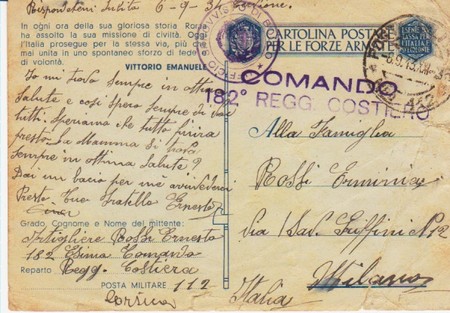 Rispondetemi Subito 6-9-
In ogni ora della sua gloriosa storia Roma
ha assolto la sua missione di civiltà. Oggi
l'Italia prosegue per la stessa via, più che
mai unita in uno spontaneo sforzo di fede e
di volontà.
VITTORIO EMANUELE
Io mi trovo Sempre in ottima
Salute e così Spero Sempre di voi
tutti. Speriamo che tutto finisca
presto. La Mamma Si trova
Sempre in ottima Salute ?
Dai un bacio per me arrivederci
Presto. Tuo fratello Ernesto
Grado Cognome e Nome del mittente:
Artigliere Rossi Ernesto
182 Esimo Comando
Reparto Regg. Costiera
POSTA MILITARE 112
Corsica
CARTOLINA POSTALE
PER LE FORZE ARMATE
COMANDO
182° REGG. COSTIERO
Alla Famiglia
Rossi Erminia
Via Sav. Griffini N 12
Milano
Italia